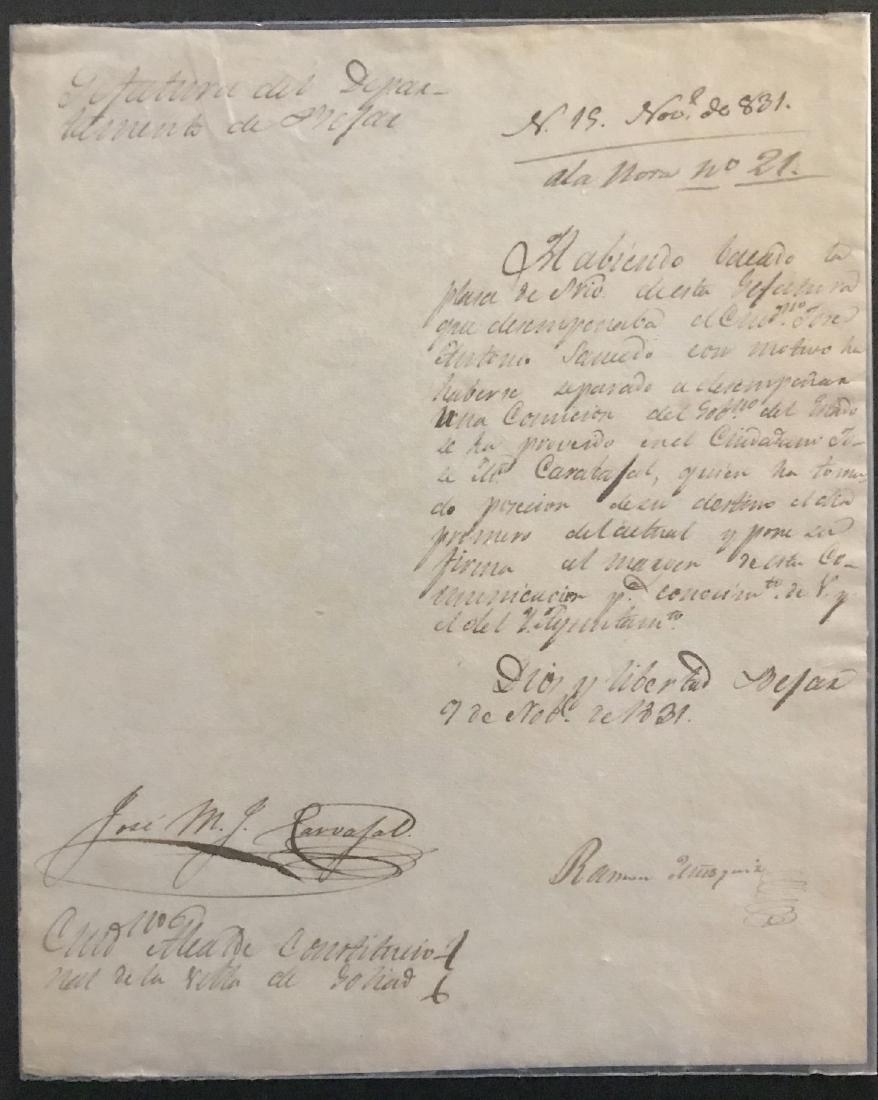 Gefatura del Depar-
tamento de Bejar
N. 15. Nov.e de 831.
ala Nora nº 21.
Habiendo bacado la
plasa de Srio. de esta Gefatura
que desempeñaba el Ciud.no José
Antonio Saucedo con motivo ha
haberse separado a desempeñar
una Comicion del Gob.no del Estado
se ha proveido en el Ciudadano Jo-
se Ma. Carabajal, quien ha toma-
do posecion de su destino el dia
primero del actual y pone su
firma al margen de esta Co-
municacion pa. conocim.to de V. y
el del Y. Ayuntam.to
Dios y libertad Bejar
9 de Nobe. de 1831.
José M. J. Carvajal.
Ramon Musquiz
Ciud.no Alcalde Constitucio-
nal de la Villa de Goliad